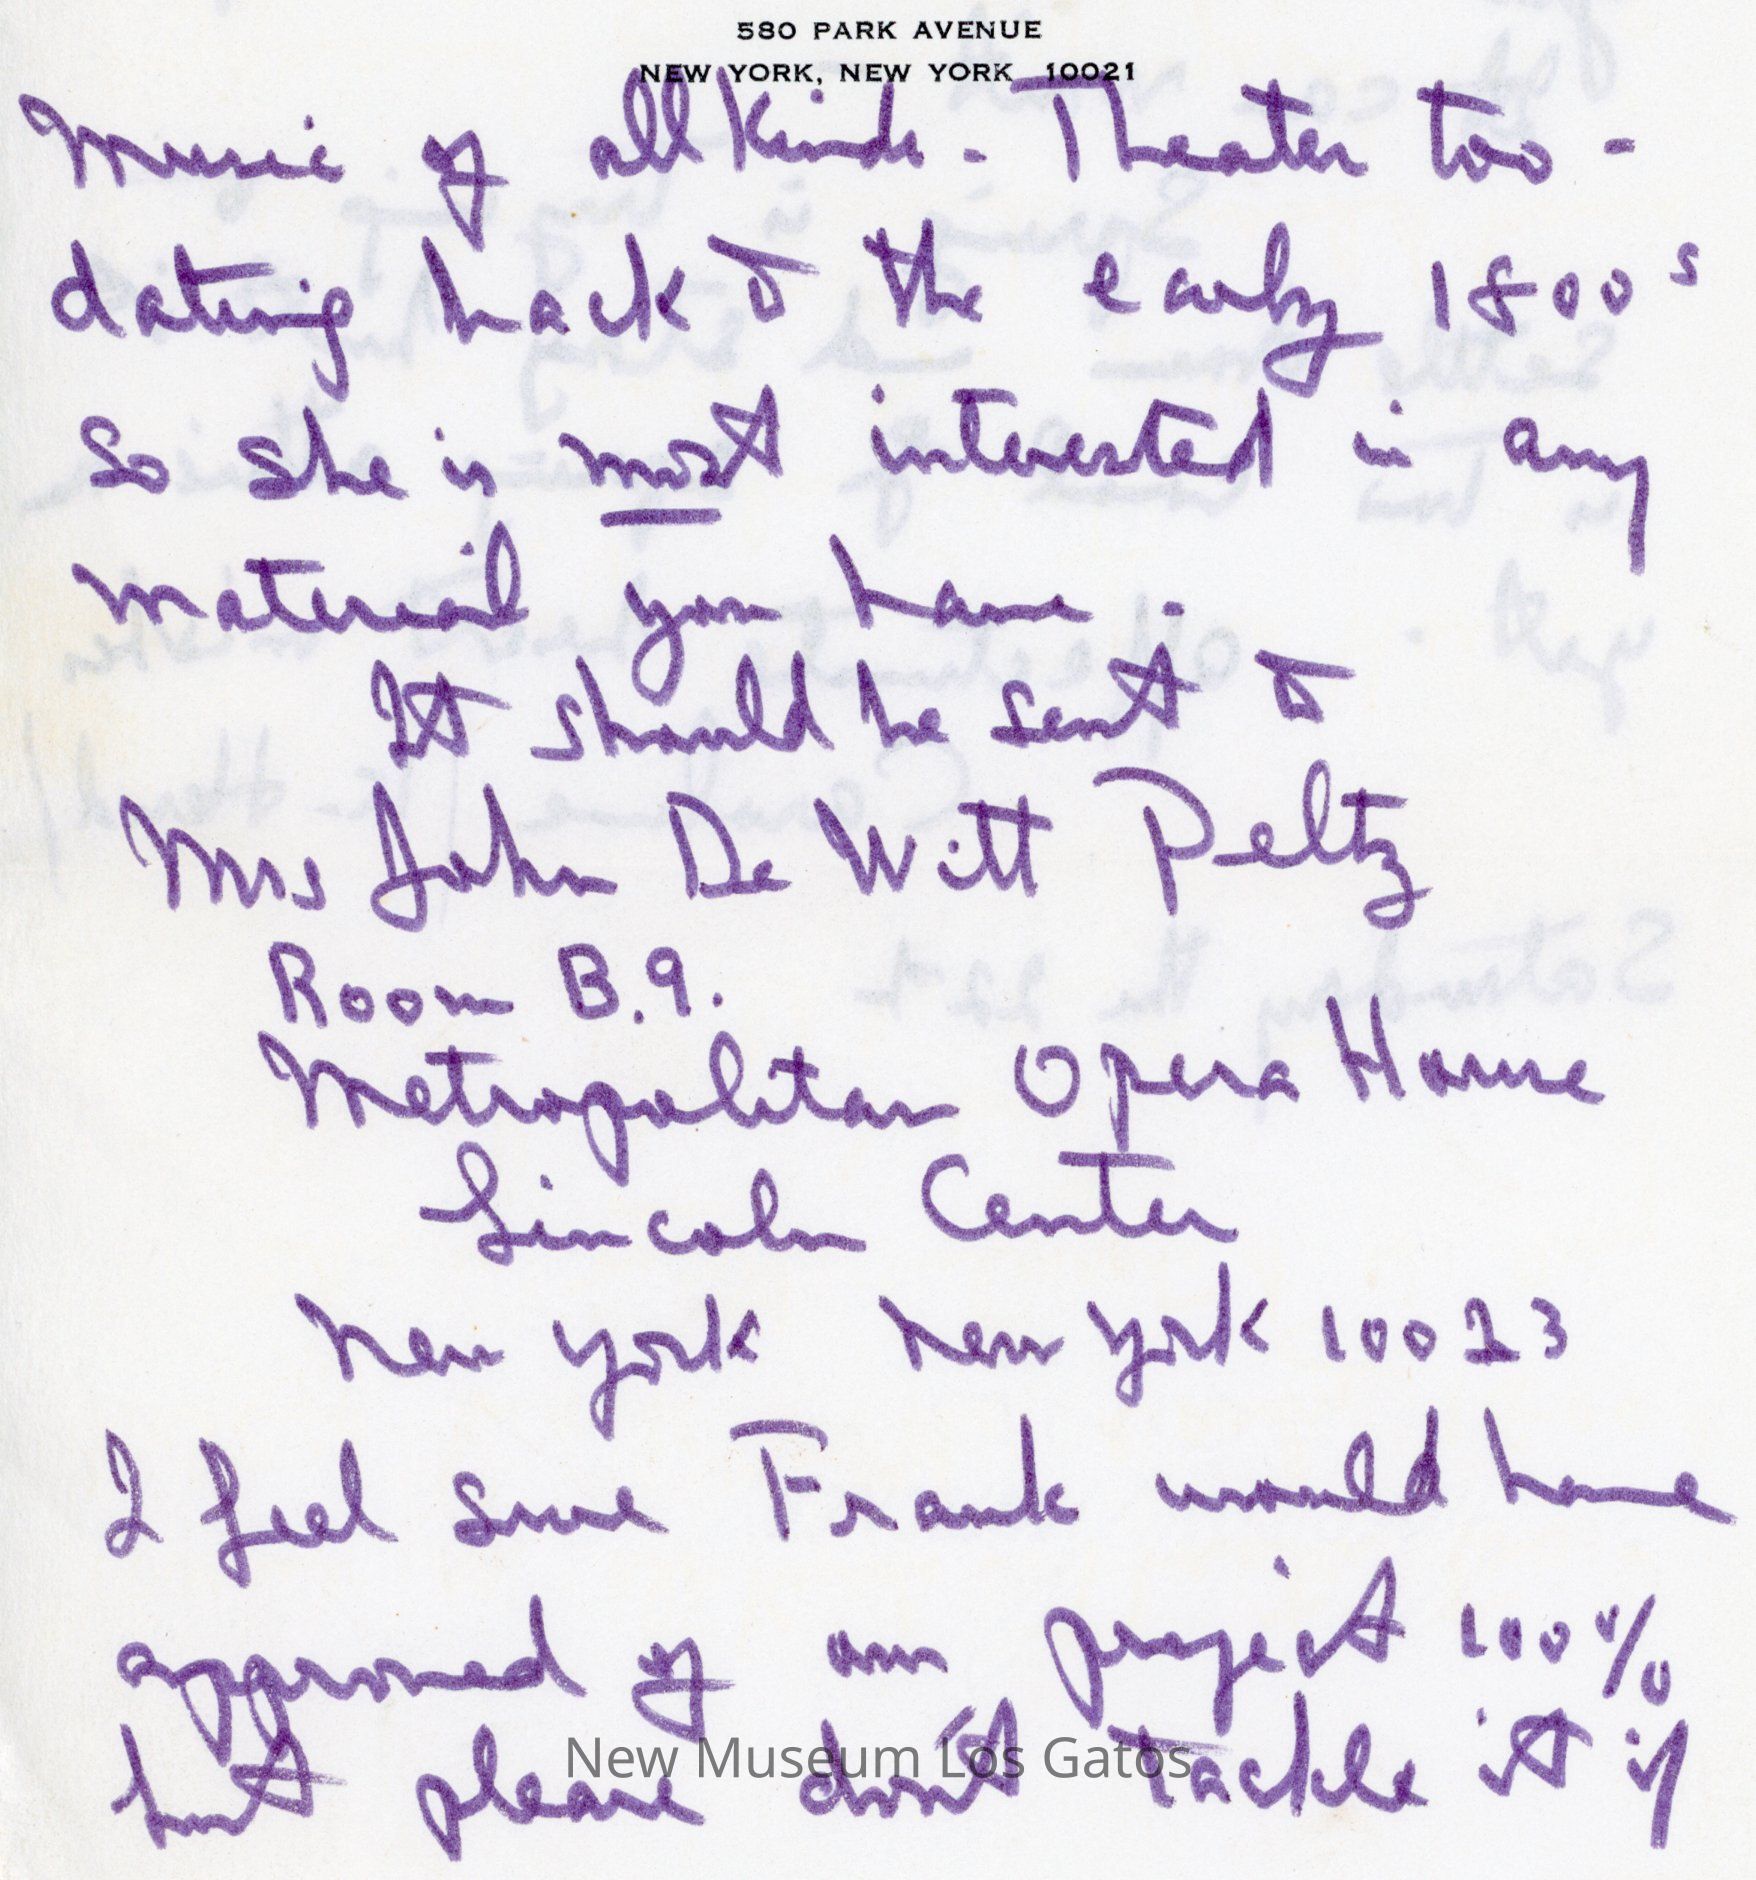 580 PARK AVENUE
NEW YORK, NEW YORK 10021
Music of all kinds - Theater too -
dating back to the early 1800s
So she is most interested in any
material you have.
It should be sent to
Mrs John De Witt Peltz
Room B.9.
Metropolitan Opera House
Lincoln Center
New York New York 10023
I feel sure Frank would have
approved of our project 100%
but please don't tackle it if
New Museum Los Gatos